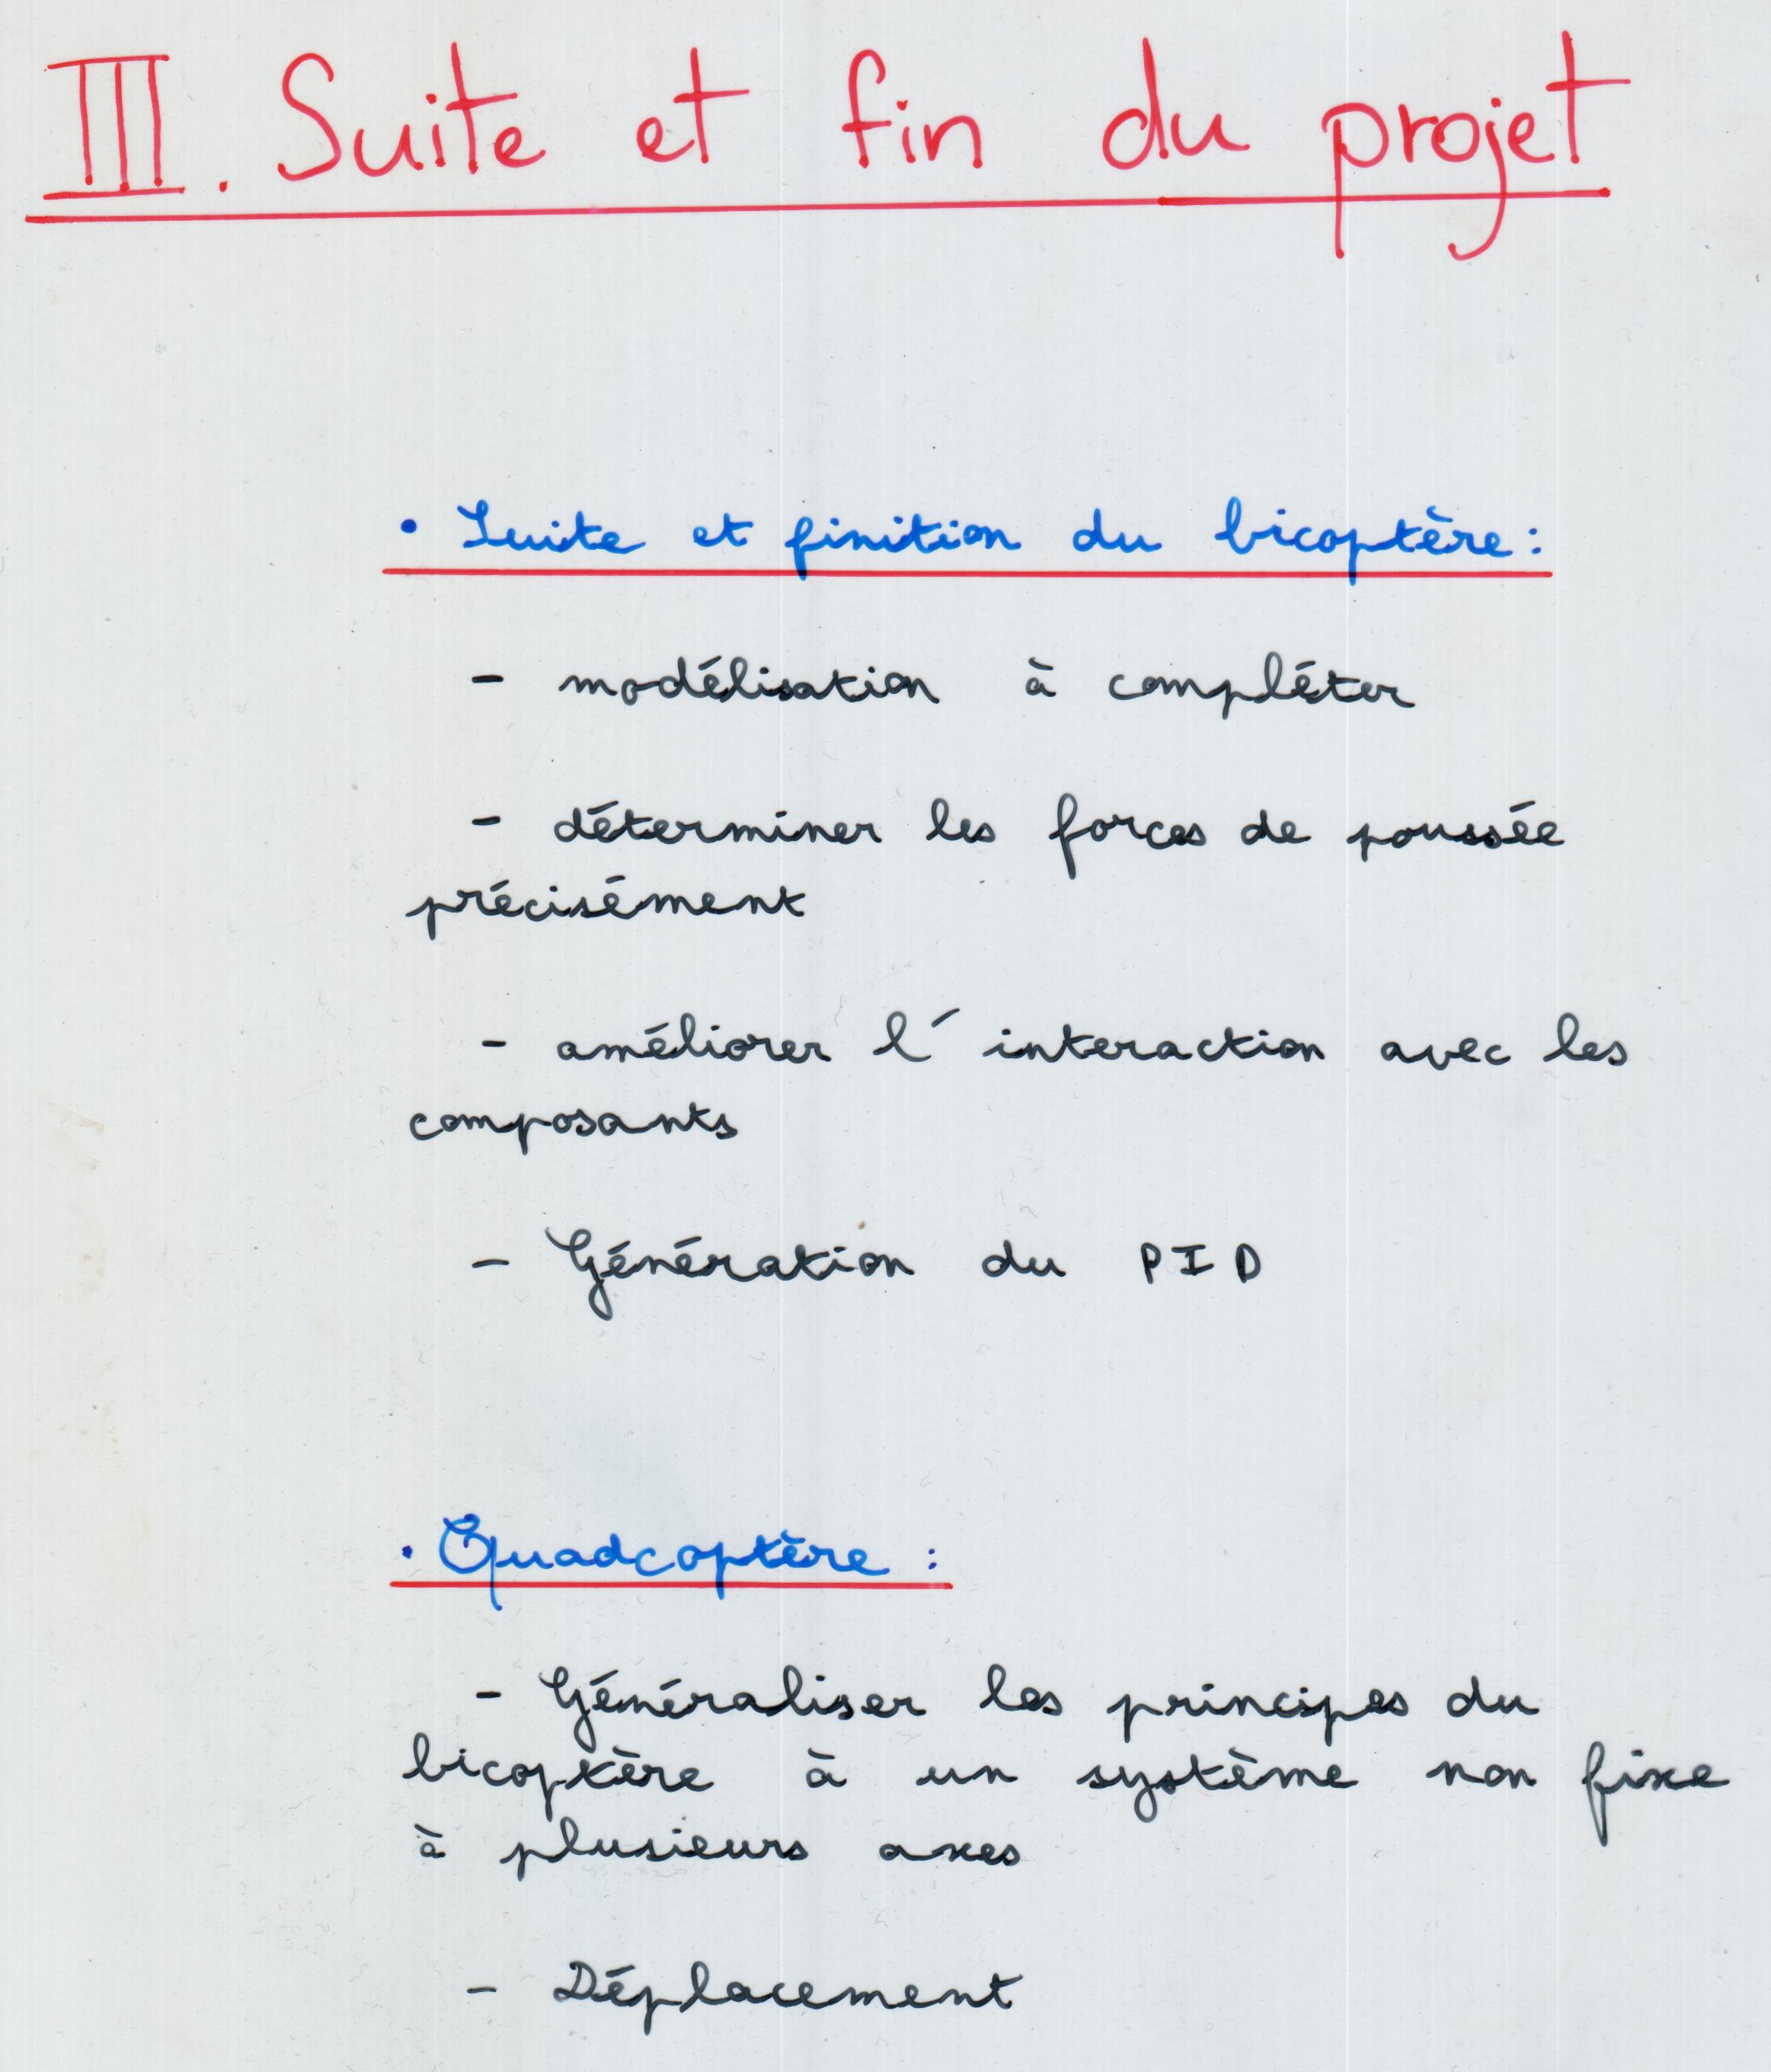 III. Suite et fin du projet
• Suite et finition du bicoptère :
- modélisation à compléter
- déterminer les forces de poussée
précisément
- améliorer l'interaction avec les
composants
- Génération du PID
• Quadcoptère :
- Généraliser les principes du
bicoptère à un système non fixe
à plusieurs axes
- Déplacement